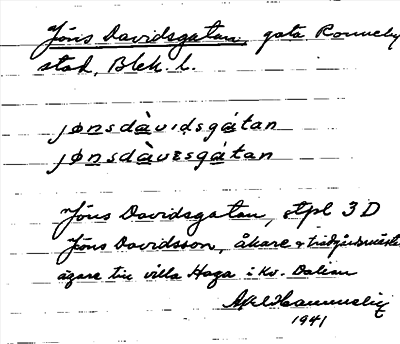 Jöns Davidsgatan, gata Ronneby
stad, Blek. l.
jønsdàvidsgátan
jønsdàvəsgátan
Jöns Davidsgatan, stpl 3 D
Jöns Davidsson, åkare + trädgårdsmäst.
ägare till villa Haga i kv. Dalian
1941